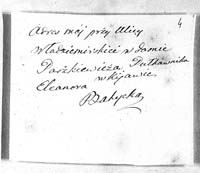 4
Adres mój przy Ulicy
Włodzimirskiéi w domie
Paszkiewicza Pułkownika
w Kijowie.
Eleanora